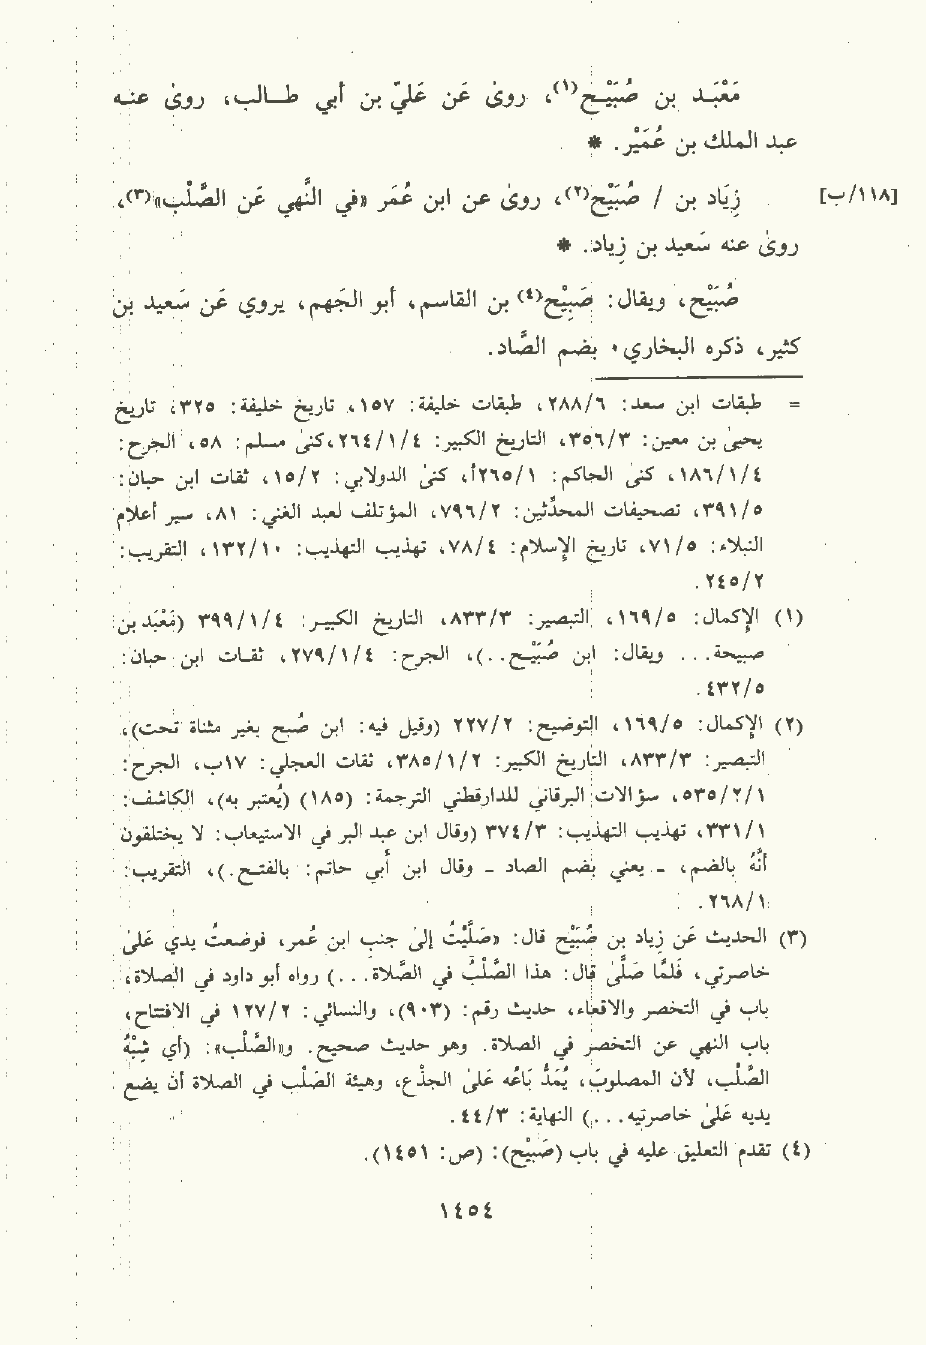 مَعْبَد بن صُبَيْح(١)، روىٰ عَن عَليّ بن أبي طالب، روىٰ عنه
عبد الملك بن عُمَيْر. *
[١١٨/ب] زِيَاد بن / صُبَيْح(٢)، روىٰ عن ابن عُمَر «في النَّهي عَن الصَّلْب»(٣)،
روىٰ عنه سَعيد بن زِياد. *
صُبَيْح، ويقال: صَبِيْح(٤) بن القاسم، أبو الجَهم، يروي عَن سَعيد بن
كثير، ذكره البخاري بضم الصَّاد.
= طبقات ابن سعد: ٢٨٨/٦، طبقات خليفة: ١٥٧، تاريخ خليفة: ٣٢٥، تاريخ
يحيىٰ بن معين: ٣٥٦/٣، التاريخ الكبير: ٢٦٤/١/٤، كنىٰ مسلم: ٥٨، الجرح:
١٨٦/١/٤، كنىٰ الحاكم: ٢٦٥/١أ، كنىٰ الدولابي: ١٥/٢، ثقات ابن حبان:
٣٩١/٥، تصحيفات المحدِّثين: ٧٩٦/٢، المؤتلف لعبد الغني: ٨١، سير أعلام
النبلاء: ٧١/٥، تاريخ الإسلام: ٧٨/٤، تهذيب التهذيب: ١٣٢/١٠، التقريب:
٢٤٥/٢.
(١) الإكمال: ١٦٩/٥، التبصير: ٨٣٣/٣، التاريخ الكبير: ٣٩٩/١/٤ (مَعْبَد بن
صبيحة... ويقال: ابن صُبَيْح..)، الجرح: ٢٧٩/١/٤، ثقات ابن حبان:
٤٣٢/٥.
(٢) الإكمال: ١٦٩/٥، التوضيح: ٢٢٧/٢ (وقيل فيه: ابن صُبح بغير مثناة تحت)،
التبصير: ٨٣٣/٣، التاريخ الكبير: ٣٨٥/١/٢، ثقات العجلي: ١٧ب، الجرح:
٥٣٥/٢/١، سؤالات البرقاني للدارقطني الترجمة: (١٨٥) (يُعتبر به)، الكاشف:
٣٣١/١، تهذيب التهذيب: ٣٧٤/٣ (وقال ابن عبد البر في الاستيعاب: لا يختلفون
أنَّهُ بالضم، - يعني بضم الصاد - وقال ابن أبي حاتم: بالفتح.)، التقريب:
٢٦٨/١.
(٣) الحديث عَن زِياد بن صُبَيْح قال: «صَلَّيْتُ إلى جنب ابن عُمر، فوضعتُ يدي عَلىٰ
خاصرتي، فلمَّا صَلَّىٰ قال: هذا الصَّلْبُ في الصَّلاة...) رواه أبو داود في الصلاة،
باب في التخصر والاقعاء، حديث رقم: (٩٠٣)، والنسائي: ١٢٧/٢ في الافتتاح،
باب النهي عن التخصر في الصلاة. وهو حديث صحيح. و«الصَّلب»: (أي شِبْهُ
الصَّلْب، لأن المصلوب، يُمَدُّ بَاعُه عَلىٰ الجذْع، وهيئة الصَّلب في الصلاة أن يضع
يديه عَلىٰ خاصرتيه...) النهاية: ٤٤/٣.
(٤) تقدم التعليق عليه في باب (صَبيْح): (ص: ١٤٥١).
١٤٥٤